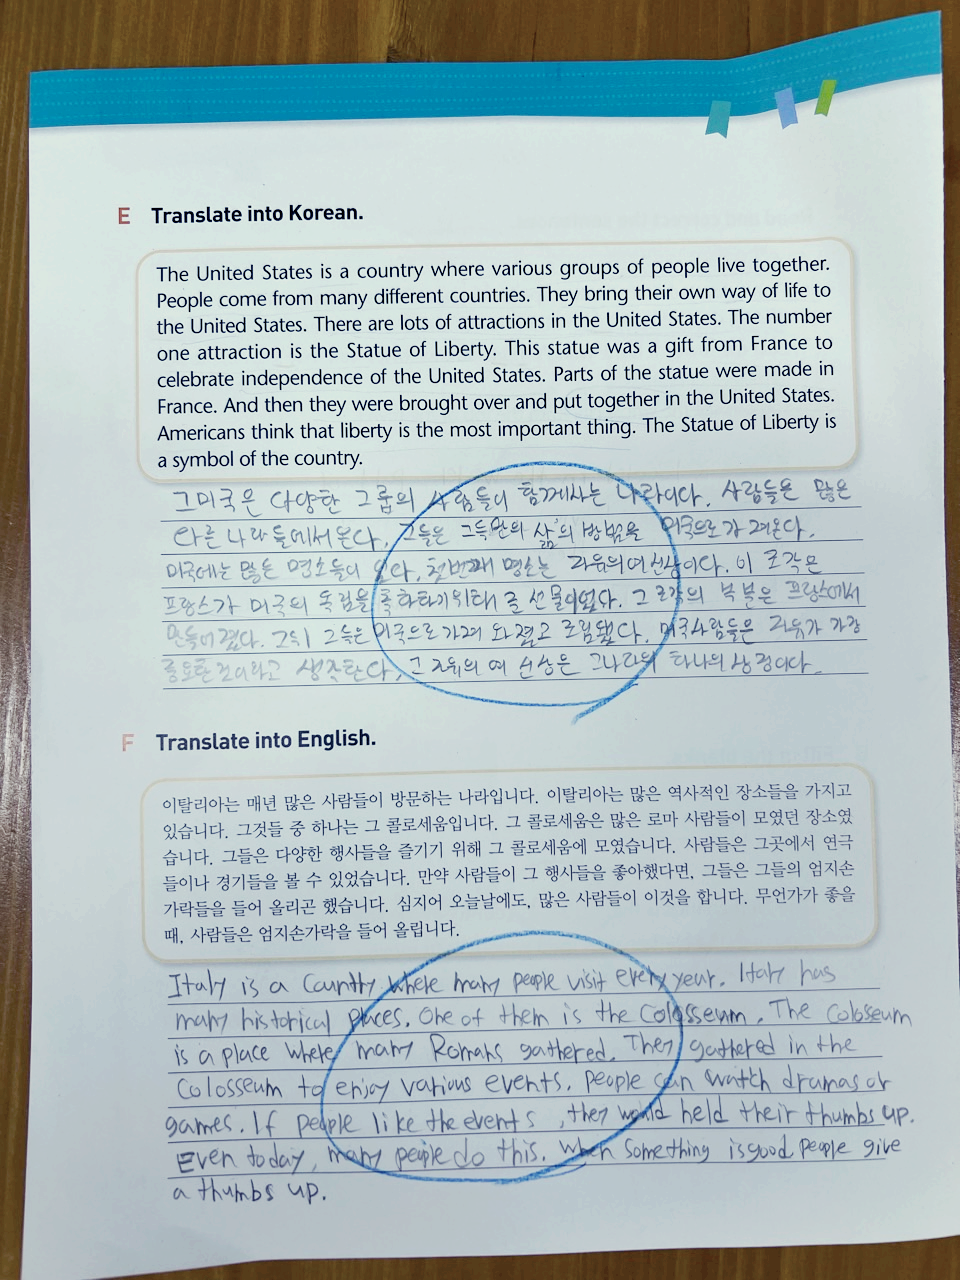 E Translate into Korean.
The United States is a country where various groups of people live together.
People come from many different countries. They bring their own way of life to
the United States. There are lots of attractions in the United States. The number
one attraction is the Statue of Liberty. This statue was a gift from France to
celebrate independence of the United States. Parts of the statue were made in
France. And then they were brought over and put together in the United States.
Americans think that liberty is the most important thing. The Statue of Liberty is
a symbol of the country.
그미국은 다양한 그룹의 사람들이 함께사는 나라이다. 사람들은 많은
다른 나라들에서온다. 그들은 그들만의 삶의 방법을 미국으로가져온다.
미국에는 많은 명소들이 있다. 첫번째 명소는 자유의여신상이다. 이 조각은
프랑스가 미국의 독립을 위해 준 선물이었다. 그 조각의 부분은 프랑스에서
만들어졌다. 그들은 미국으로 가져와졌고 조립됐다. 미국사람들은 자유가 가장
중요한것이라고 생각한다. 그 자유의 여신상은 그나라의 하나의 상징이다.
F Translate into English.
이탈리아는 매년 많은 사람들이 방문하는 나라입니다. 이탈리아는 많은 역사적인 장소들을 가지고
있습니다. 그것들 중 하나는 그 콜로세움입니다. 그 콜로세움은 많은 로마 사람들이 모였던 장소였
습니다. 그들은 다양한 행사들을 즐기기 위해 그 콜로세움에 모였습니다. 사람들은 그곳에서 연극
들이나 경기들을 볼 수 있었습니다. 만약 사람들이 그 행사들을 좋아했다면, 그들은 그들의 엄지손
가락들을 들어 올리곤 했습니다. 심지어 오늘날에도, 많은 사람들이 이것을 합니다. 무언가가 좋을
때, 사람들은 엄지손가락을 들어 올립니다.
Italy is a Country where many people visit every year. Italy has
many historical places. One of them is the Colosseum. The Coloseum
is a place where many Romans gathered. They gathered in the
Colosseum to enjoy various events. People can watch dramas or
games. If people like the events, they would held their thumbs up.
Even today, many people do this. When something is good people give
a thumbs up.